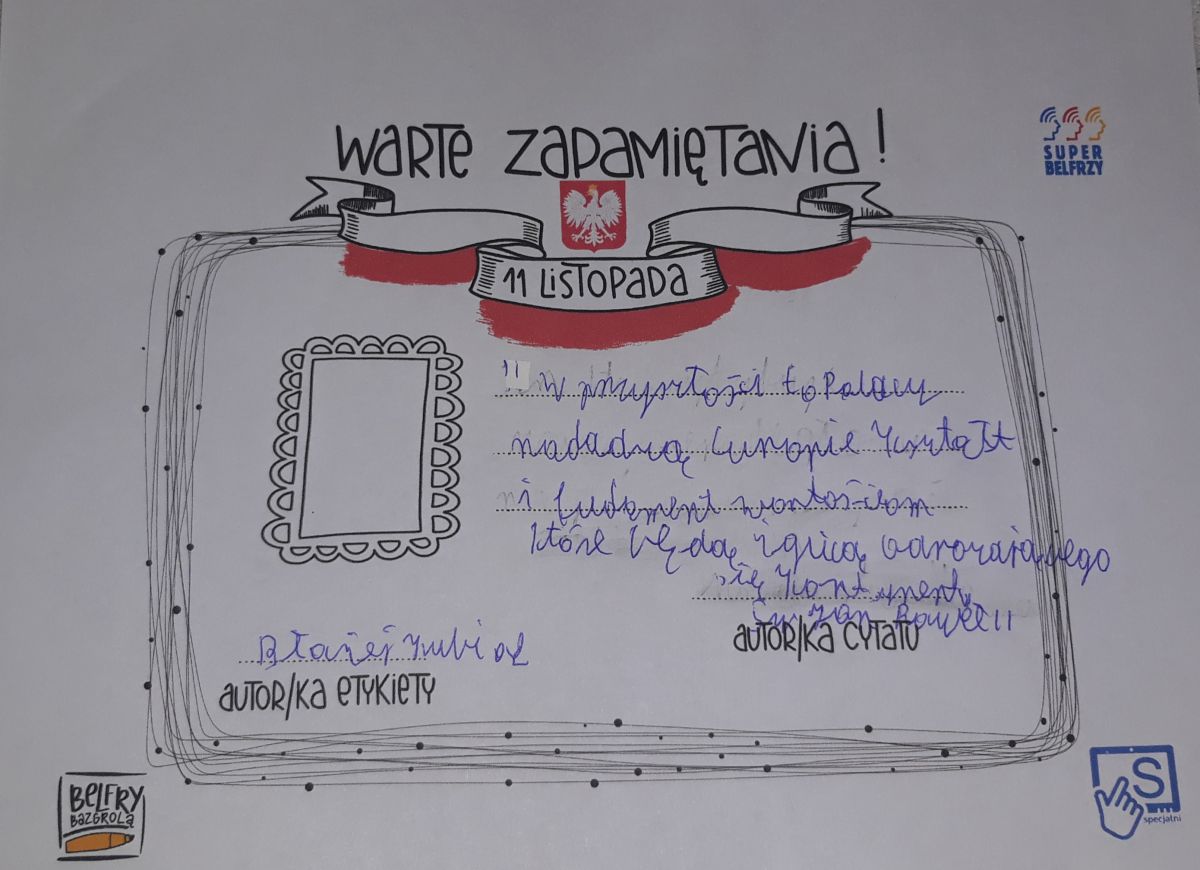 WARTE ZAPAMIĘTANIA!
SUPER
BELFRZY
11 LISTOPADA
" w przyszłości to Polacy
nadadzą Europie kształt
i fundament wartościom
które będą
się kontynent
św Jan Paweł II
AUTOR/KA CYTATU
Błażej Kubiak
AUTOR/KA ETYKIETY
BELFRY
BAZGROLĄ
S
specjalni